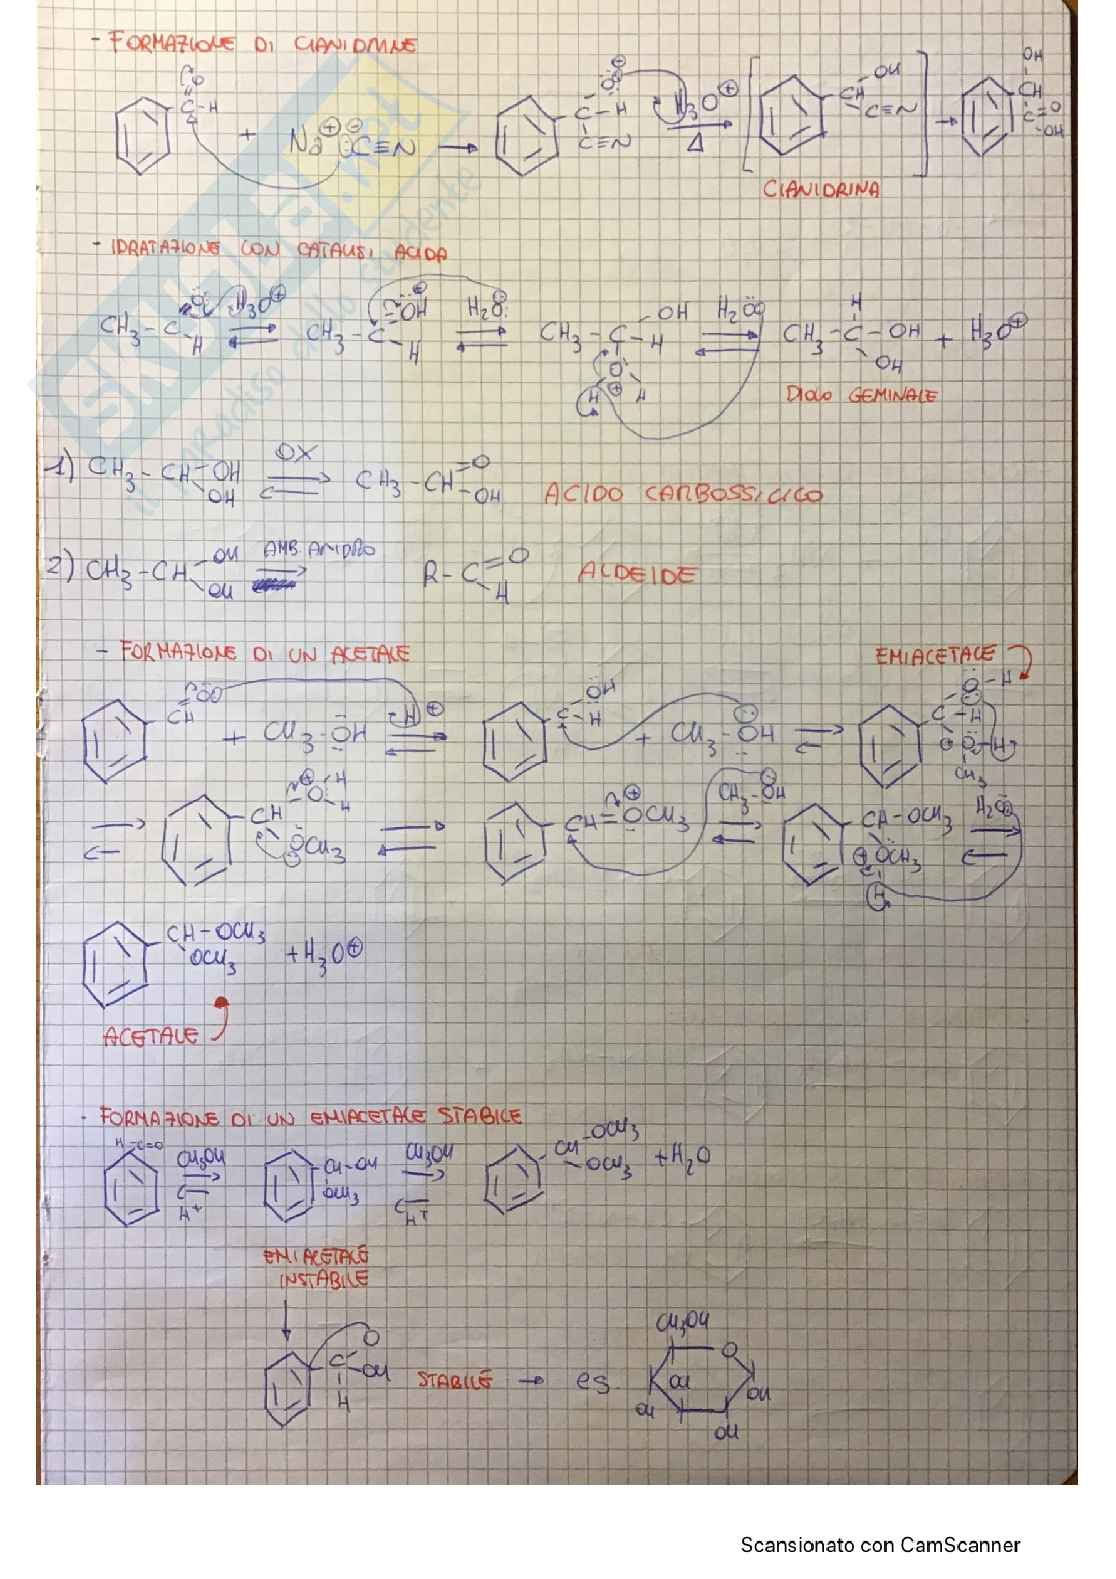 - FORMAZIONE DI CIANIDRINE
+ Na⊕ ⊖:C≡N → H₃O⊕ Δ
CIANIDRINA
- IDRATAZIONE CON CATALISI ACIDA
CH₃-C H H₃O⊕ ⇌ CH₃-C OH H H₂O ⇌ CH₃-C-H OH H₂O ⇌ CH₃-C-OH H OH + H₃O⊕
DIOLO GEMINALE
1) CH₃-CH-OH OH OX ⇌ CH₃-CH=O -OH ACIDO CARBOSSILICO
2) CH₃-CH OH OH AMB. ANIDRO → R-C=O H ALDEIDE
- FORMAZIONE DI UN ACETALE EMIACETALE
+ CH₃-OH H⊕ ⇌ + CH₃-OH ⇌
⇌ CH OCH₃ ⇌ CH=OCH₃ CH₃-OH ⇌ CH-OCH₃ OCH₃ H H₂O ⇌
CH-OCH₃ OCH₃ + H₃O⊕
ACETALE
- FORMAZIONE DI UN EMIACETALE STABILE
H-C=O CH₃OH H⁺ ⇌ CH-OH OCH₃ CH₃OH H⁺ ⇌ CH-OCH₃ -OCH₃ + H₂O
EMIACETALE
INSTABILE
C O OH H STABILE → es. CH₃OH O OH OH OH OH
Scansionato con CamScanner
SKUOLA.net
il paradiso dello studente